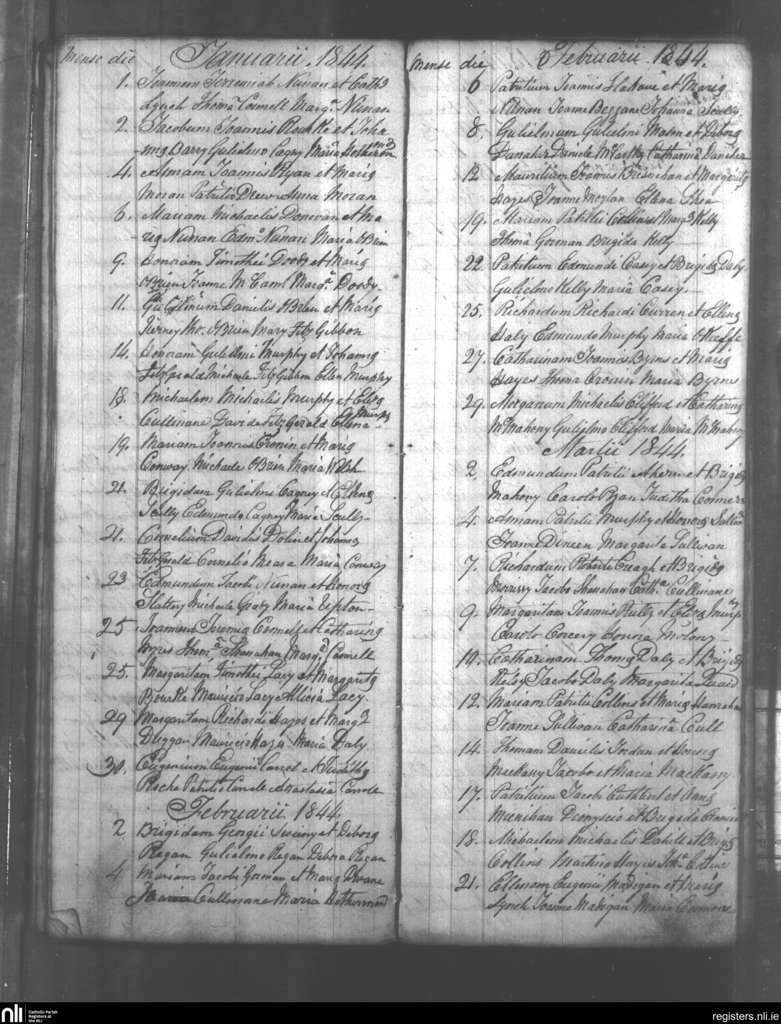 Mense die Januarii. 1844.
1. Joannem Jeremiah Nunan et Cath
Lynch Thoma Connell Margt. Nunan
2. Jacobum Joannis Rourke et Joha
nna Barry Gulielmo Cagny Maria
4. Annam Joannis Ryan et Maria
Moran Patritio Drew Anna Moran
6. Mariam Michaelis Donovan et Ma
ria Nunan Edmo. Nunan Maria OBrien
9. Honoram Timothei Doody et Maria
OBrien Joanne Margt. Doody
11. Gulielmum Danielis OBrien et Maria
Tierney Thos. OBrien Mary FitzGibbon
14. Honoram Gulielmi Murphy et Johanna
FitzGerald Michaele FitzGibbon Ellen Murphy
18. Michaelem Michaelis Murphy et Eliza
Cullinane Davide FitzGerald Ellena Murphy
19. Mariam Joannis Cronin et Maria
Conway Michaele OBrien Maria Welsh
21. Brigidam Gulielmi Cagney et Ellena
Scully Edmundo Cagney Maria Scully
21. Cornelium Davidis et Johanna
FitzGerald Cornelio Meara Maria Conway
23 Edmundum Jacobi Nunan et Honora
Slattery Michaele Maria Upton
25 Joannem Connell et Catharina
Thoma Shanahan Margt. Connell
25. Margaritam Timothei Lacy et Margarita
Bourke Mauricio Lacy Allicia Lacy
29 Margaritam Richardi Hayes et Margt
Duggan Mauricio Maria Daly
30. Eugenium Eugenii et Juditha
Roche Patritio Anastasia
Februarii 1844.
2 Brigidam Georgii Sweeny et Debora
Regan Gulielmo Regan Debora Regan
4 Mariam Jacobi Gorman et Maria
Cullinane Maria
Mense die Februarii. 1844.
6 Patritium Joannis et Maria
Nunan Joanne Johanna
8. Gulielmum Gulielmi Mahon et Debora
Danaher Daniele McCarthy Catharina Danaher
12 Mauritium Joannis Bresnehan et Margarita
Hayes Joanne Ellena Shea
19. Miriam Patritii Collins et Marga Kelly
Thoma Gorman Brigida Kelly
22 Patritium Edmundi Casey et Brigida Daly
Gulielmo Kelly Maria Casey
25. Richardum Richardi Curren et Ellena
Daly Edmundo Murphy Maria OKeeffe
27. Catharinam Joannis Byrns et Maria
Hayes Thoma Cronin Maria Byrns
29. Morganum Michaelis Clifford et Catharina
McMahony Gulielmo Clifford Maria McMahony
Martii 1844.
2. Edmundum Patritii Ahern et Brigida
Mahony Carolo Ryan Juditha Connors
4. Annam Patritii Murphy et Honora Sullivan
Joanne Dineen Margarita Sullivan
7. Richardum Roberti Creagh et Brigida
Jacobo Shanahan Catha. Cullinane
9. Margaritam Joannis Reilly et Eliza Murphy
Carolo Honora Molony
10. Catharinam Thomae Daly et Brigida
Jacobo Daly Margarita
12. Mariam Patritii Collins et Maria Hanrahan
Joanne Sullivan Catharina
14. Thomam Danielis et Honora
MacKassy Jacobo et Maria MacKassy
17. Patritium Jacobi et Anna
Dionysio et Brigida Cronin
18. Michaelem Michaelis Cahill et Brigida
Collins Martino Hayes Collins
21. Ellenam Eugenii Madigan et Maria
Lynch Joanne Madigan Maria
NLI
Catholic Parish
Registers at
the NLI
registers.nli.ie